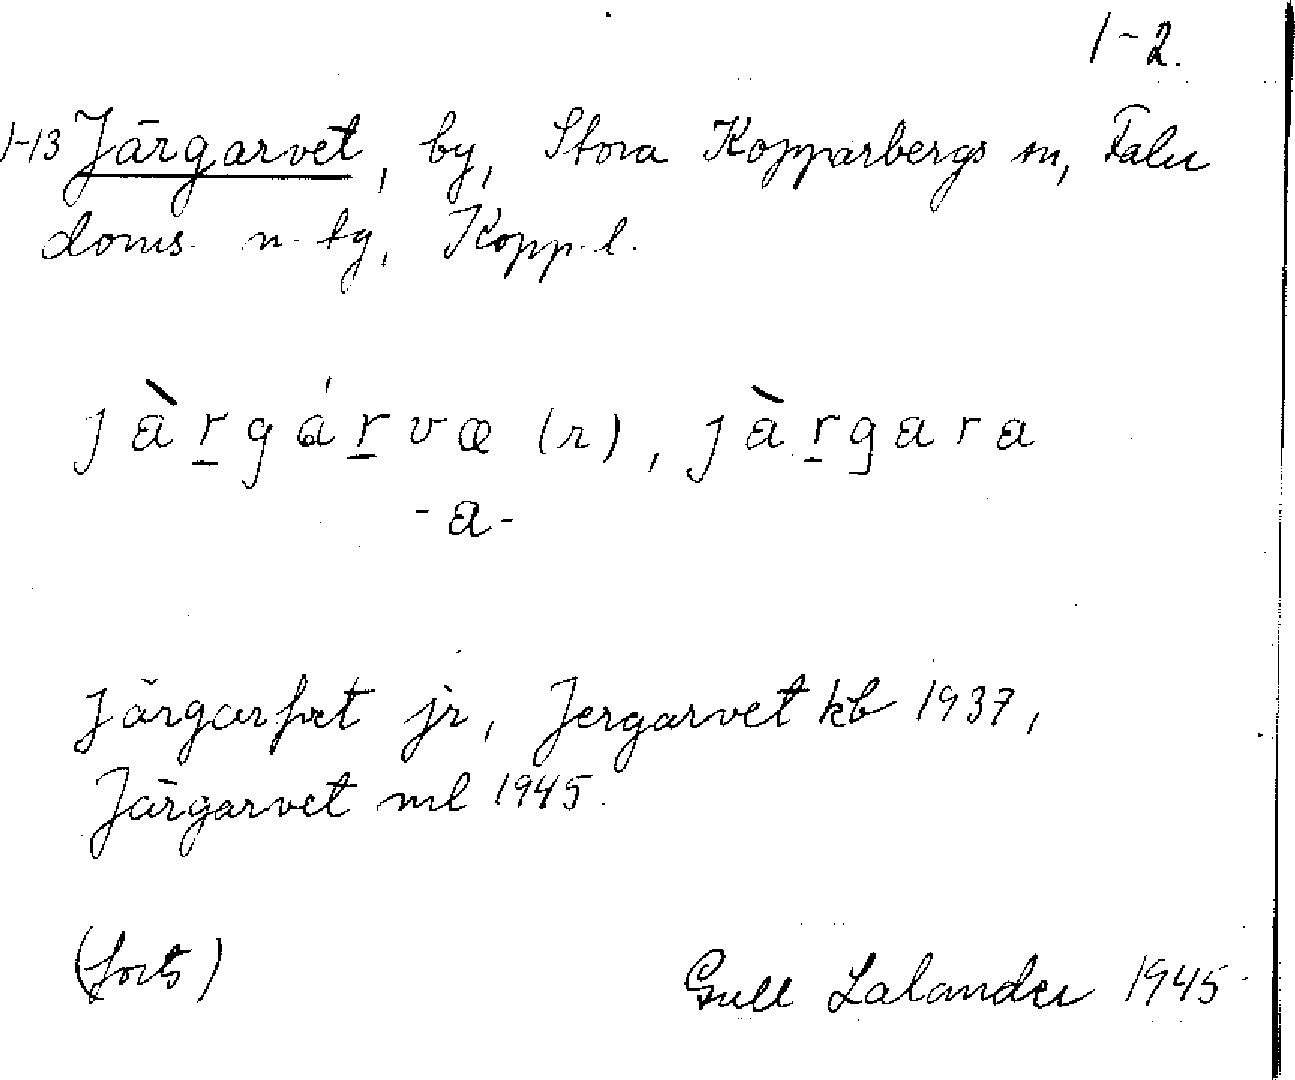 1-2.
1-13 Järgarvet, by, Stora Kopparbergs sn, Falu
doms. n. tg, Kopp. l.
jàr̲gár̲væ (r), jàr̲gara
-a-
Järgarfvet jr, Jergarvet kb 1937,
Järgarvet ml 1945.
(forts)
Gull Lalander 1945